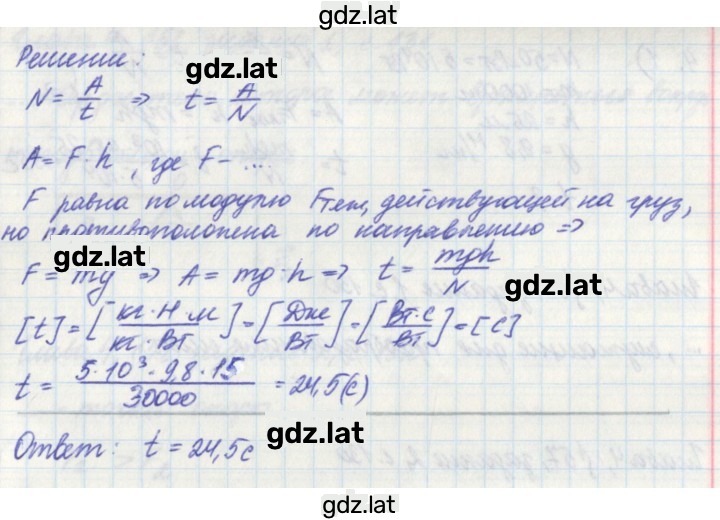 gdz.latt
Решение:
gdz.latt
N = A/t ⇒ t = A/N
A = F·h, где F – ...
F равна по модулю Fтяж, действующей на груз,
но противоположена по направлению ⇒
gdz.latt
F = mg ⇒ A = mg·h ⇒ t = mgh/N
gdz.latt
[t] = [кг·Н·м/кг·Вт] = [Дж/Вт] = [Вт·с/Вт] = [с]
t = 5·10³·9,8·15/30000 = 24,5(с)
Ответ: t = 24,5с
gdz.latt
gdz.latt